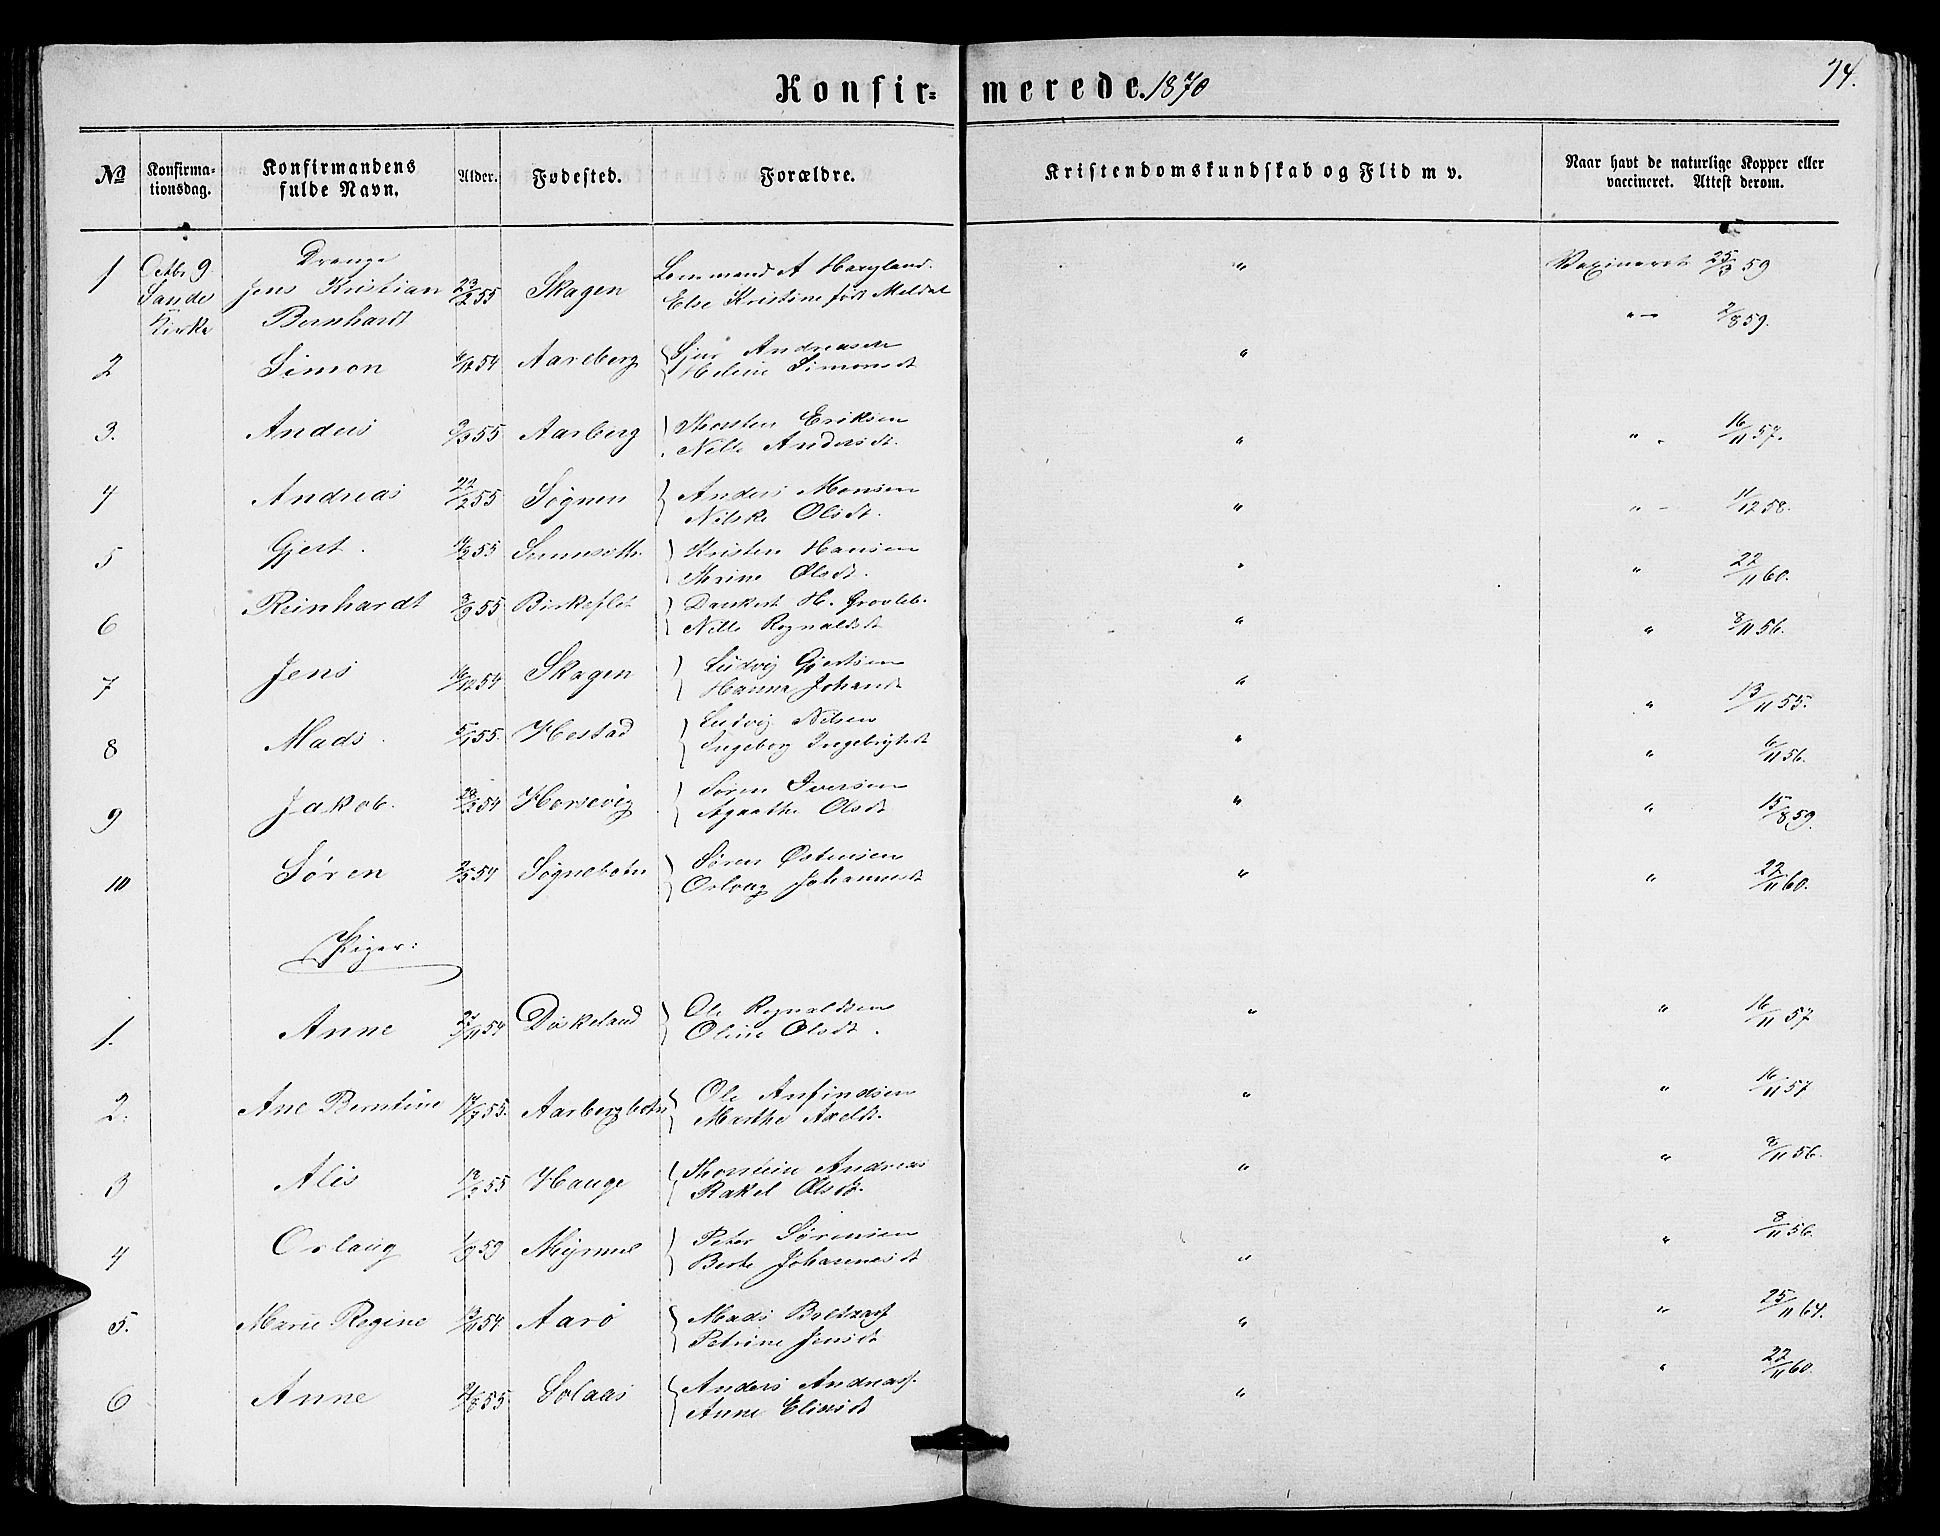 Konfir=merede. 1870
74.
№ Konfirma=tionsdag. Konfirmandens fulde Navn. Alder. Fødested. Forældre. Kristendomskundskab og Flid m v. Naar havt de naturlige Kopper eller vaccineret. Attest derom.
Drenge
1 Octbr 9 Sande Kirke Jens Kristian Bernhardt 23/2 55 Skagen Else Kristine født Meldal " Vaxineret 25/3 59
" — 2/8 59.
2 Simon Aarberg Sjur Andreasen Helene Simonsdt "
3. Anders 9/3 55 Aarberg Thorsten Eriksen Nille Andersdt. " " 16/11 57.
4 Andreas 22/2 55 Sögnen Anders Monsen Nilske Olsdt. " " 11/12 58.
5 Gjert. Kristen Hansen Thrine Olsdt. " " 22/11 60.
6 Reinhardt Birkeflet Dankert H. Nille Regnaldsdt " " 8/11 56.
7 Jens 16/12 54 Skagen Ludvig Gjertsen Hanna Johansdt " " 13/11 55.
8 Mads. 5/1 55. Hestad Ludvig Nilsen Ingeborg Ingebrigtsdt " " 6/11 56.
9 Jakob. Horsevig Søren Iversen Agaathe Olsdt " " 15/8 59.
10 Søren 2/5 54 Sögnebotn Søren Østensen Oslaug Johannesdt " " 22/11 60.
Piger:
1. Anne 27/11 54 Dirkeland Ole Regnaldsen Oline Olsdt. " " 16/11 57
2. Ane Berntine 17/7 55. Aarbergbotn Ole Anfindsen Marthe Axeldt. " " 16/11 57
3 Alis Hauge Thorstein Andreas Rakel Olsdt. " " 8/11 56.
4 Oslaug Myrene Peter Sørensen Berte Johannesdt " " 8/11 56.
5. Marie Regine 13/11 54 Aarö Mads Boltzarf Petrine Jensdt " " 25/11 64.
6 Anne 21/8 55 Solaas Anders Andreasf. Anne Eliasdt " " 22/11 60.